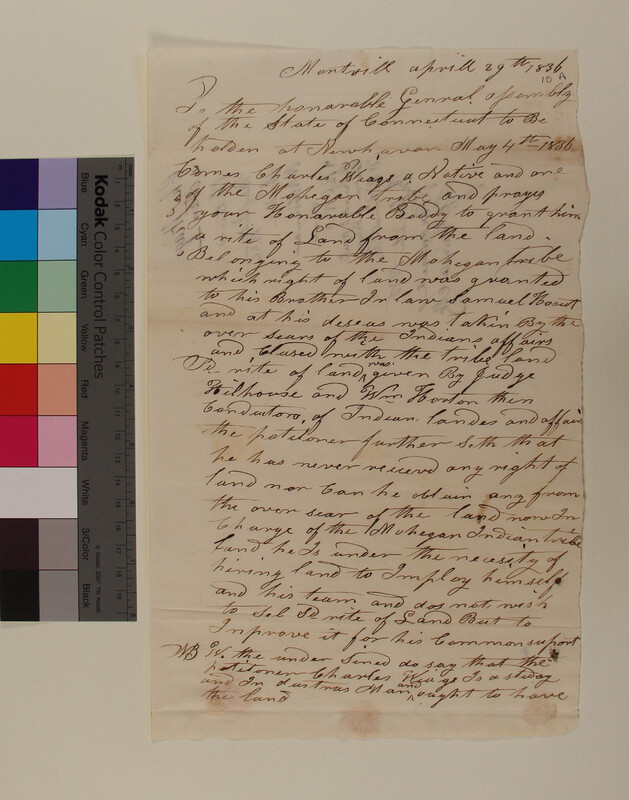 Montvill aprill 29th 1836
10 A
To the honarable Genral assembly
of the State of Connecticut to Be
holden at Newhavan May 4th 1836
Comes Charles Wiags a Native and one
of the Mohegan tribe and prayes
your Honarable Boddy to grant him
a rite of Land from the land
Belonging to the Mohegan tribe
which right of land was granted
to his Brother In law Samuel
and at his deseas was takin By the
over sears of the Indians affairs
and Clased with the tribe land
rite of land was given By Judge
Hilhouse and Wm Horton then
Conductors of Indian landes and affairs
the potitoner further Seth that
he has never receved any right of
land nor Can he obtain any from
the over sear of the land now In
Charge of the Mohegan Indian tribe
land he Is under the necesity of
hiring land to Imploy himself
and his team and dos not wish
to Sel rite of Land But to
Improve it for his Common suport
NB We the under Sined do say that the
potitoner Charles Wiags Is a stidy
and Industras Man and ought to have
the land
Kodak Color Control Patches
Blue
Cyan
Green
Yellow
Red
Magenta
White
3/Color
Black